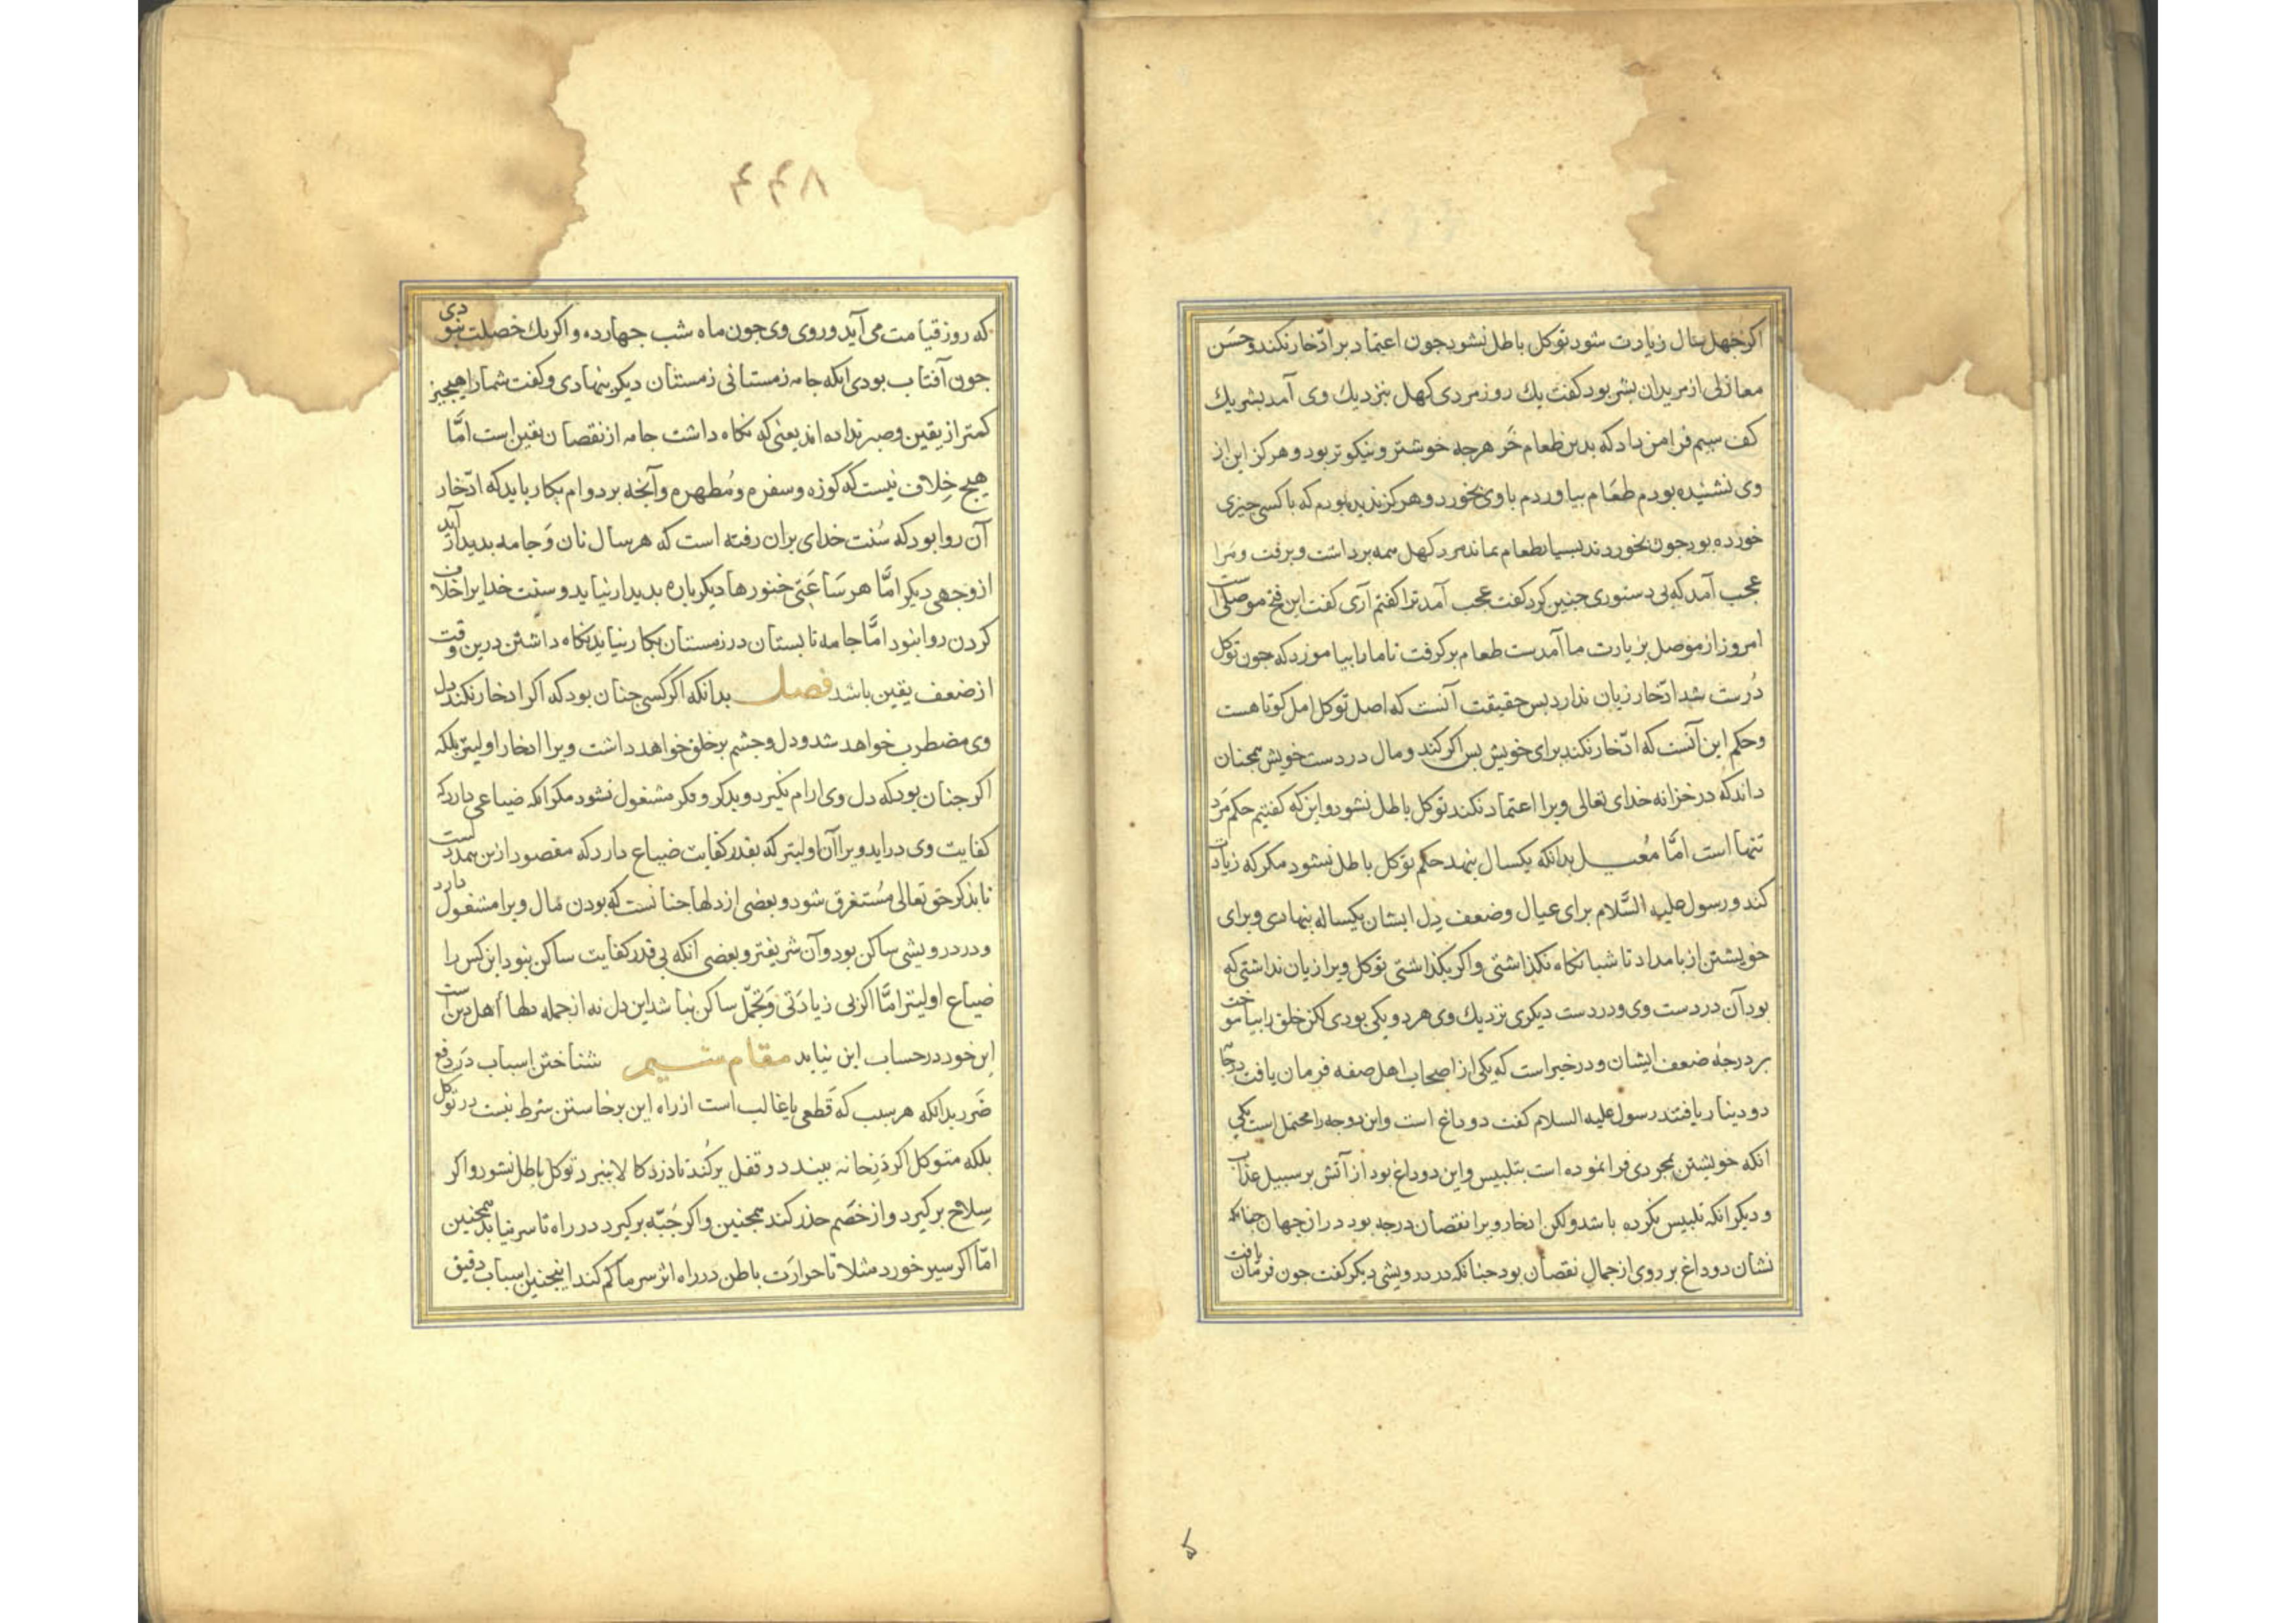 اکر چهل سال زیادت شود توکل باطل نشود جون اعتماد بر ادّخار نکند و حسَن
معازلی از مریدان بشر بود کفت یك روز مردی کهل بنزدیك وی آمد بشر یك
کف سیم فرا من داد که بدین طعام خَر هرجه خوشتر و نیکوتر بود و هرکز این از
وی نشنیده بودم طعَام بیاوردم با وی بخورد و هرکز ندیده بودم که با کسی جیزی
خورده بود جون بخوردند بسیار طعام بماند مرد کهل همه برداشت و برفت و مَرا
عجب آمد که بی دستوری جنین کرد کفت عجب آمد ترا کفتم آری کفت این فتح موصلی است
امروز از موصل بزیارت ما آمدست طعام برکرفت تا ما را بیاموزد که جون توکل
دُرست شد ادّخار زیان ندارد بس حقیقت آنست که اصل توکل امل کوتاهست
وحکم این آنست که ادّخار نکند برای خویش بس اکر کند و مال در دست خویش همجنان
داند که در خزانه خدای تعالی و برا اعتماد نکند توکل باطل نشود و این که کفتیم حکم مَرد
تنها است امَّا مُعیل بدانکه یکسال بنهد حکم توکل باطل نشود مکر که زیادت
کند و رسول علیه السَّلام برای عیال و ضعف دِل ایشان یکساله بنهادی و برای
خویشتن از بامداد تا شبانکاه نکذاشتی و اکر بکذاشتی توکل ویرا زیان نداشتی که
بود آن در دست وی و در دست دیکری نزدیك وی هر دو یکی بودی لکن خلق را بیاموخت
بر درجهٔ ضعف ایشان و در خبر است که یکی از اصحاب اهل صفه فرمان یافت در جامه
دو دینار یافتند رسول علیه السلام کفت دو داغ است و این دو وجه را محتمل است یکی
انکه خویشتن بمجردی فرا نموده است بتلبیس و این دو داغ بود از آتش بر سبیل عذاب
و دیکر انکه تلبیس نکرده باشد ولکن ادخار ویرا نقصان درجه بود در ان جهان جنانکه
نشان دو داغ بر روی از جمال نقصان بود جنانکه در درویشی دیکر کفت جون فرمان یافت
۴۴۸
که روز قیامت می آید و روی وی جون ماه شب جهارده و اکر یك خصلت نبودی
جون آفتاب بودی انکه جامه زمستانی زمستان دیکر بنهادی و کفت شما را هیج جیز
کمتر از یقین و صبر نداده اند یعنی که نکاه داشت جامه از نقصان یقین است امَّا
هیج خِلاف نیست که کوزه و سفره و مُطهره و آنجه بر دوام بکار باید که ادّخار
آن روا بود که سُنت خدای بران رفته است که هر سال نان وَ جامه بدیدار آید
از وَجهی دیکر امَّا هر سَاعَتی خنورها دیکر باره بدیدار نیاید و سنت خدایرا خلاف
کردن روا نبود امَّا جامه تابستان در زمستان بکار نیاید نکاه داشتن در این وقت
از ضعف یقین باشد فصل بدانکه اکر کسی جنان بود که اکر ادخار نکند دل
وی مضطرب خواهد شد و دل و جشم بر خلق خواهد داشت ویرا ادخار اولیتر بلکه
اکر جنان بود که دل وی ارام نکیرد و بذکر و فکر مشغول نشود مکر انکه ضیاعی دارد که
کفایت وی دراید ویرا آن اولیتر که بقدر کفایت ضیاع دارد که مقصود از این همه دلست
تا بذکر حق تعالی مُستغرق شود و بعضی از دلها جنانست که بودن مَال ویرا مشغول دارد
و در درویشی ساکن بود و آن شریفتر و بعضی انکه بی قدر کفایت ساکن نبود این کس را
ضیاع اولیتر امَّا اکر بی زیادَتی وَ تجمّل ساکن نباشد این دل نه از جمله دلها أهل دین است
این خود در حساب این نیاید مقام سیم شناختن اسباب در دفع
ضَرر بدانکه هر سبب که قَطعی یا غالب است از راه این برخاستن شرط نیست در توکل
بلکه متوکل اکر دَرِ خانه ببندد و قفل برکُند تا دزد کالا نبرد توکل باطل نشود و اکر
سِلاح برکیرد و از خصَم حذر کند همجنین و اکر جُبّه برکیرد در راه تا سرما نیابد همجنین
امّا اکر سیر خورد مثلا تا حرارَت باطن در راه اثر سرما کم کند اینجنین اسباب دقیق